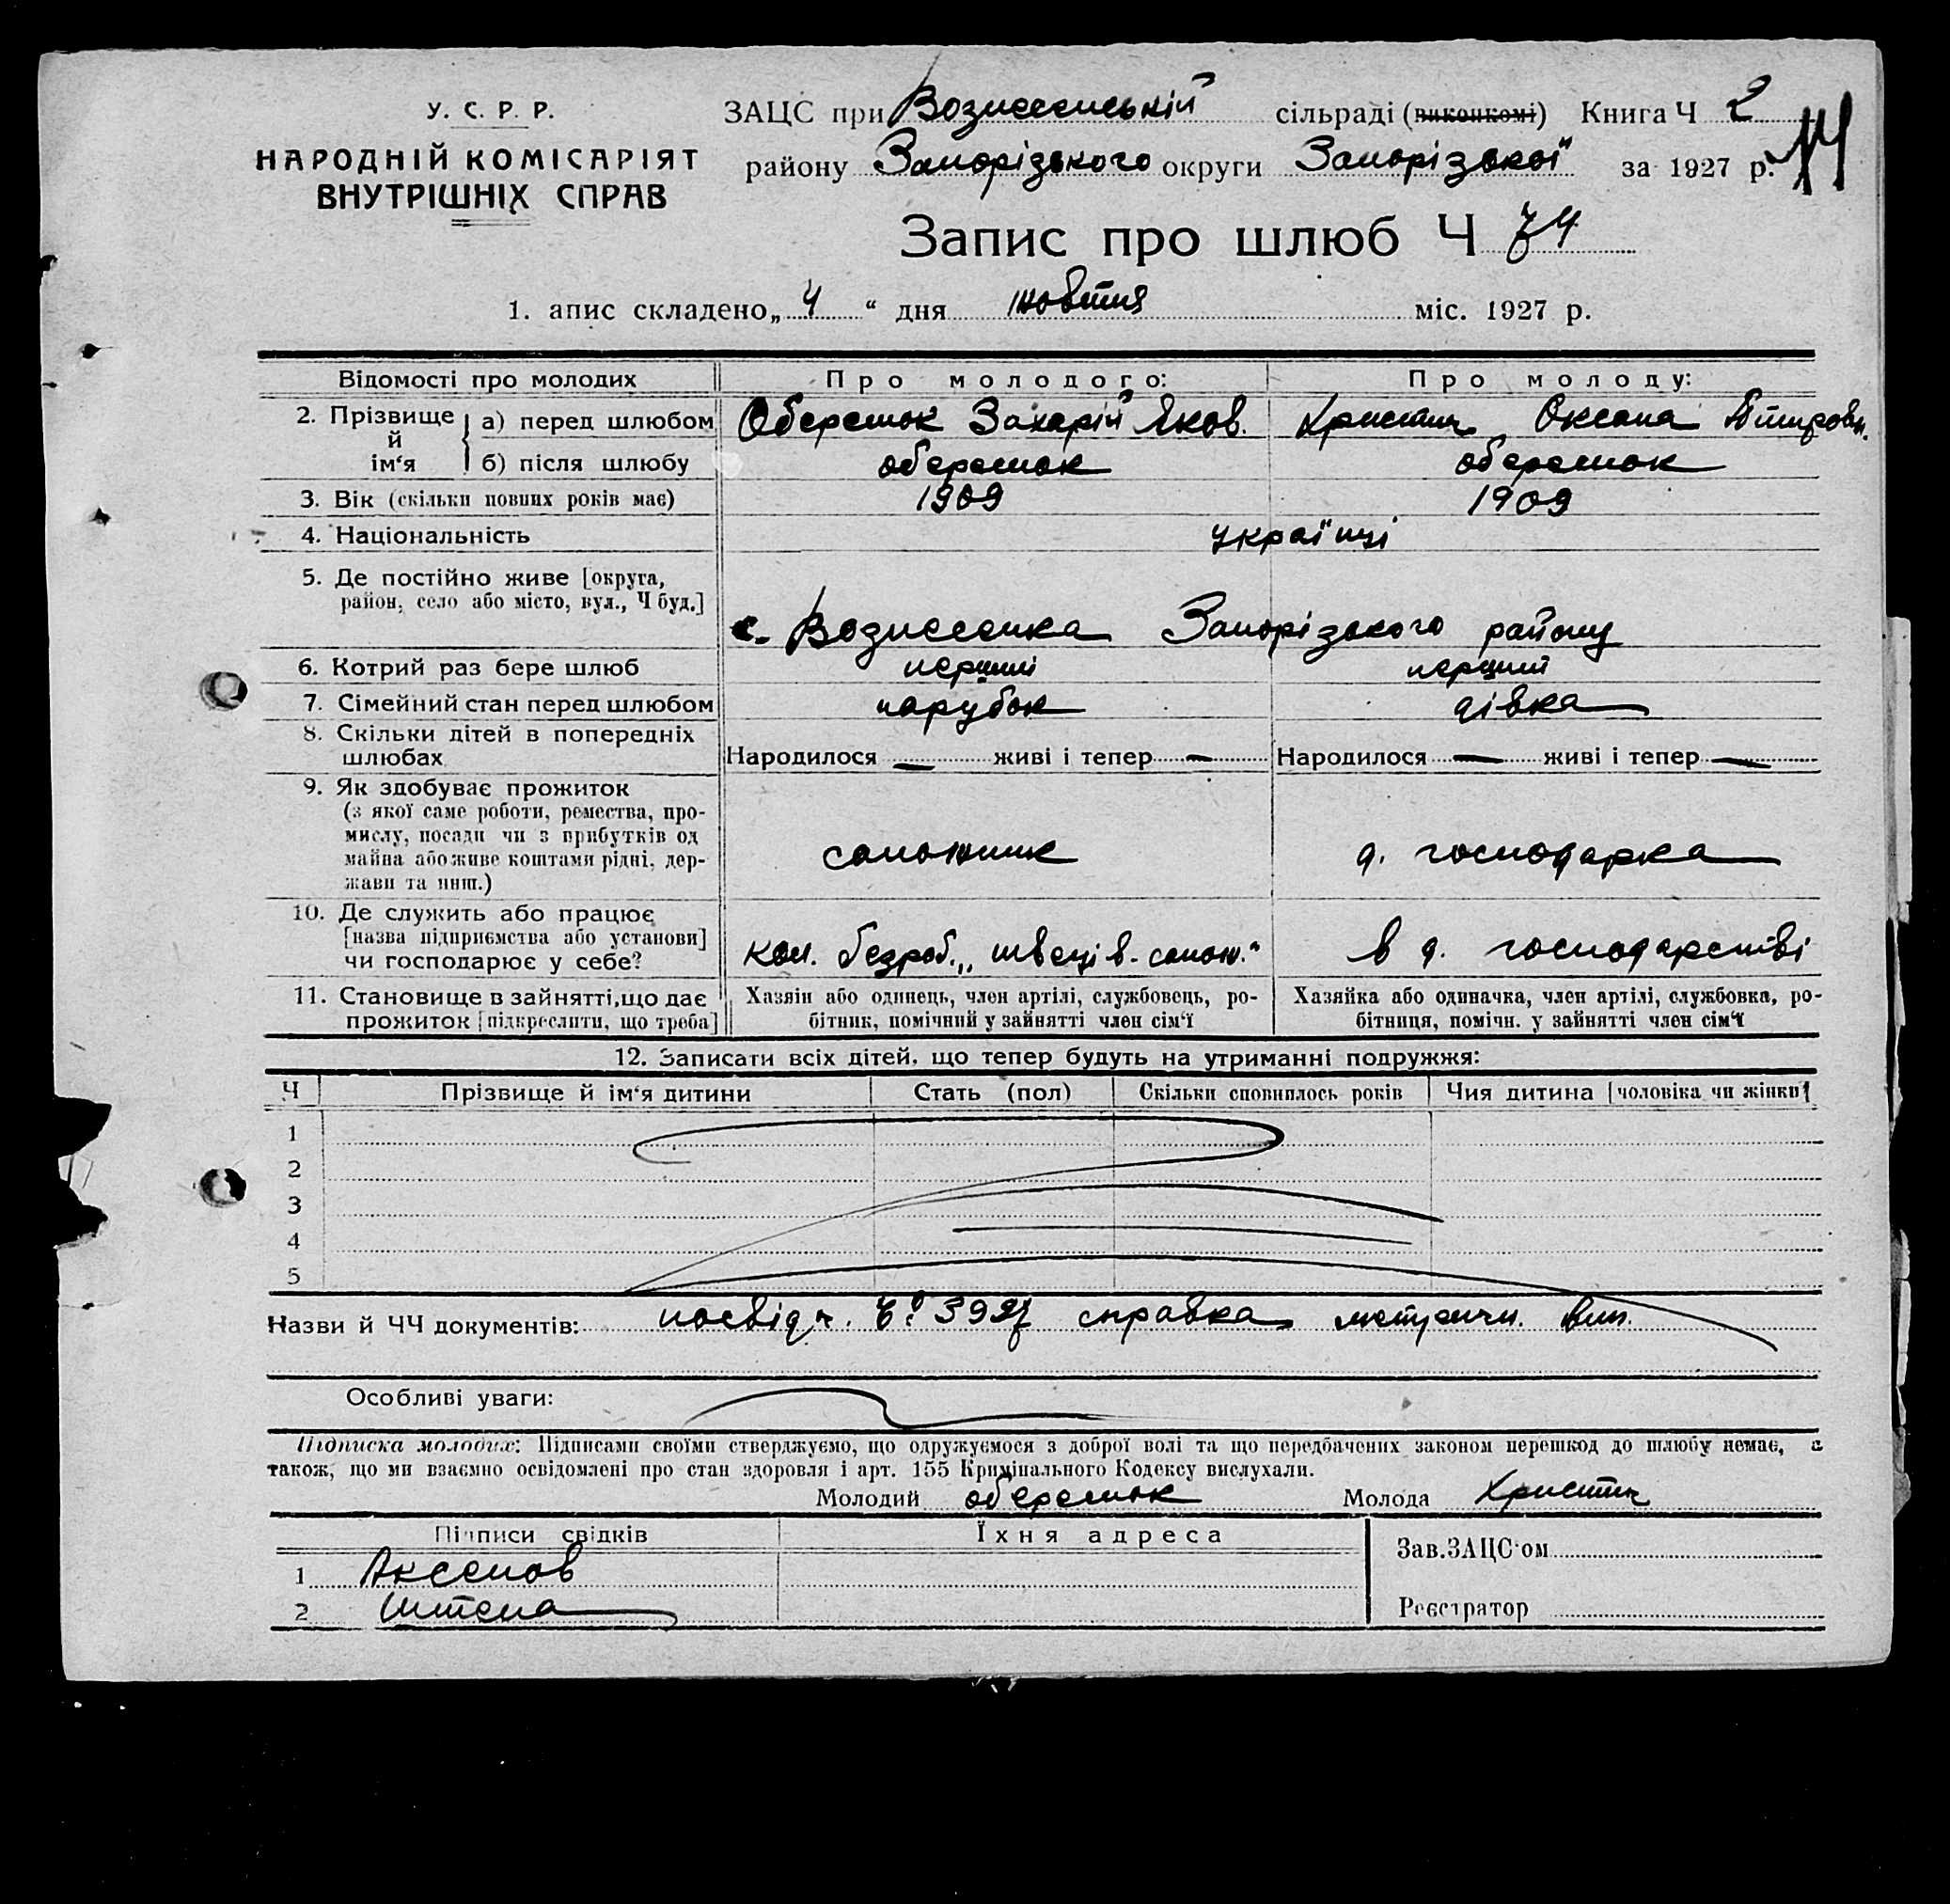 У. С. Р. Р.
НАРОДНІЙ КОМІСАРІЯТ
ВНУТРІШНІХ СПРАВ
ЗАЦС при Вознесенській сільраді (виконкомі) Книга Ч 2
району Запорізького округи Запорізької за 1927 р.
14
Запис про шлюб Ч 74
1. апис складено „ 4 “ дня жовтня міс. 1927 р.
Відомості про молодих Про молодого: Про молоду:
2. Прізвище й ім‘я а) перед шлюбом Оберемок Захарій Яков. Христич Оксана
б) після шлюбу оберемок оберемок
3. Вік (скільки повних років має) 1909 1909
4. Національність українці
5. Де постійно живе [округа,
район, село або місто, вул., Ч буд.]
с. Вознесенка Запорізького району
6. Котрий раз бере шлюб перший перший
7. Сімейний стан перед шлюбом парубок дівка
8. Скільки дітей в попередніх
шлюбах Народилося — живі і тепер — Народилося — живі і тепер —
9. Як здобуває прожиток
(з якої саме роботи, ремества, про-
мислу, посади чи з прибутків од
майна або живе коштами рідні, дер-
жави та инш.)
сапожник д. господарка
10. Де служить або працює
[назва підприємства або установи]
чи господарює у себе?
кол. безроб. „швеців-сапож.“ в д. господарстві
11. Становище в зайнятті, що дає
прожиток [підкреслити, що треба]
Хазяїн або одинець, член артілі, службовець, ро-
бітник, помічний у зайнятті член сім‘ї
Хазяйка або одиначка, член артілі, службовка, ро-
бітниця, помічн. у зайнятті член сім‘ї
12. Записати всіх дітей, що тепер будуть на утриманні подружжя:
Ч Прізвище й ім‘я дитини Стать (пол) Скільки сповнилось років Чия дитина [чоловіка чи жінки]
1
2
3
4
5
Назви й ЧЧ документів: посвідч. справка метричн. вип.
Особливі уваги:
Підписка молодих: Підписами своїми стверджуємо, що одружуємося з доброї волі та що передбачених законом перешкод до шлюбу немає, а
також, що ми взаємно освідомлені про стан здоровля і арт. 155 Кримінального Кодексу вислухали.
Молодий оберемок Молода Христич
Підписи свідків Їхня адреса
1 Аксенов
2 Штепа
Зав. ЗАЦС‘ом
Реєстратор